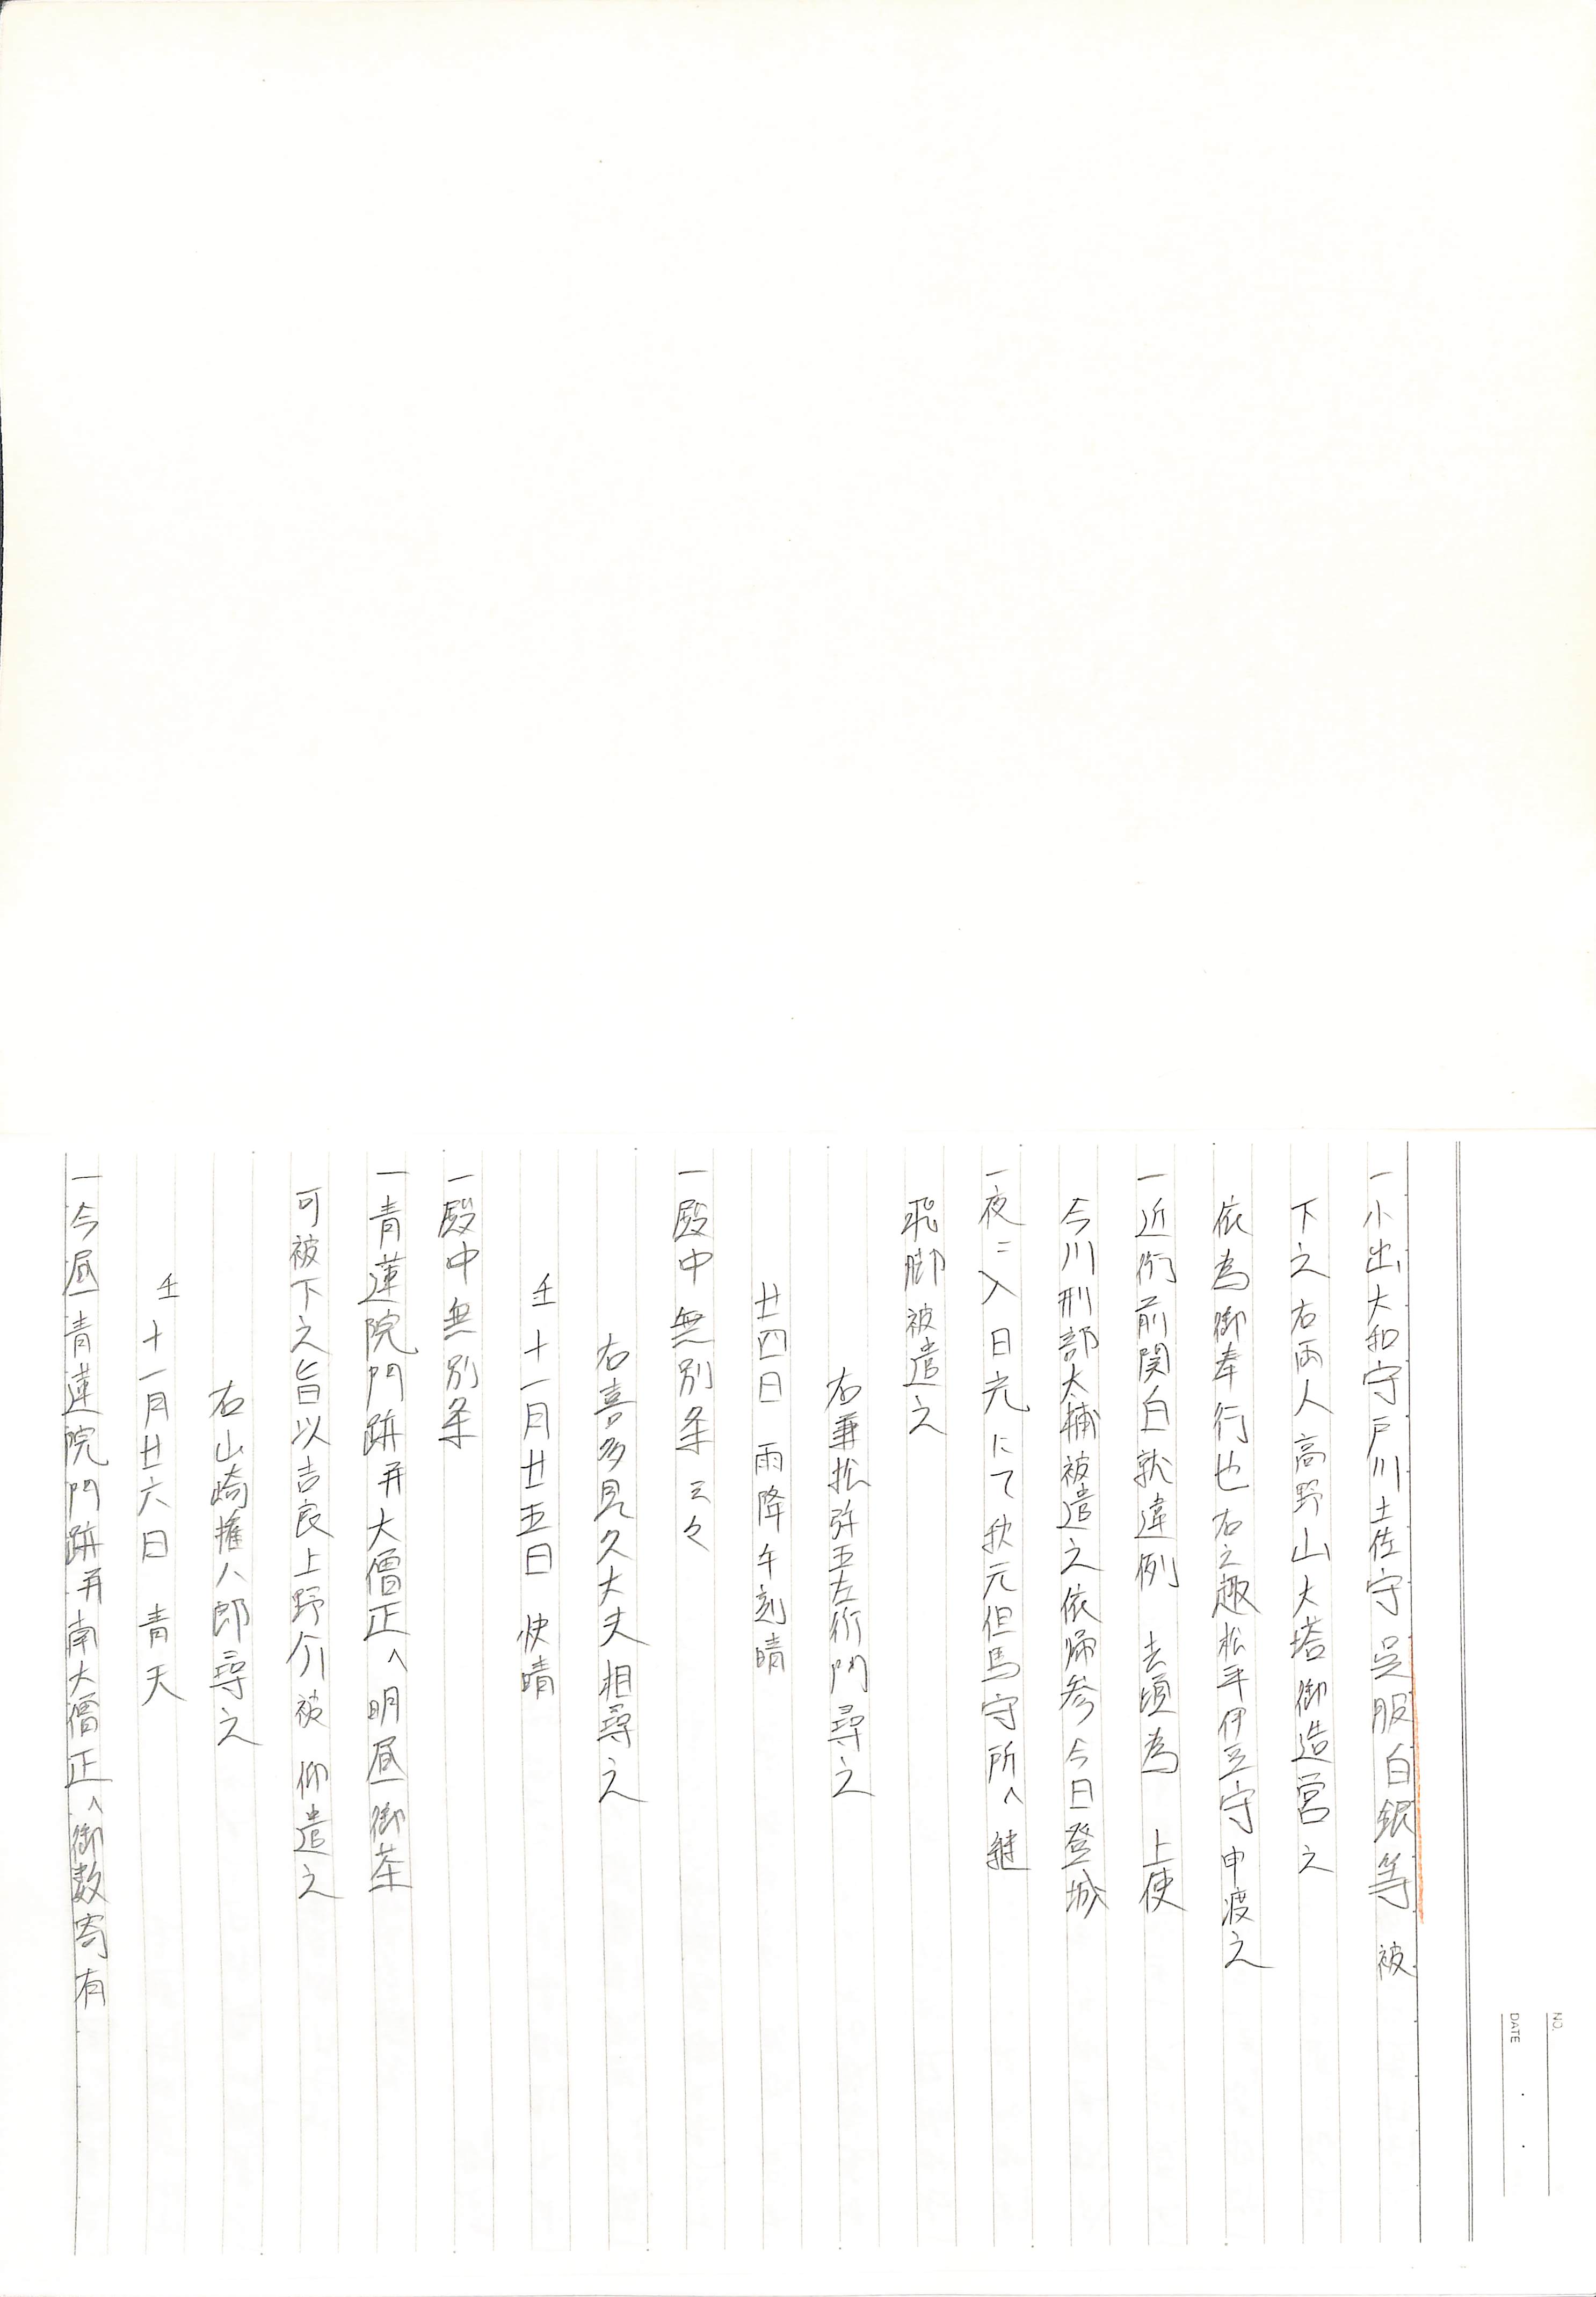 一小出大和守戸川土佐守呉服白銀等 被
下之右両人高野山大塔御造営之
依為御奉行也右之趣松平伊豆守申渡之
一近衛前関白就違例 去頃為 上使
今川刑部大輔被遣之依帰参今日登城
一夜ニ入日光にて秋元但馬守所へ継
飛脚被遣之
右兼松弥五左衛門尋之
廿四日 雨降午刻晴
一殿中無別条云々
右喜多見久大夫相尋之
壬 十一月廿五日 快晴
一殿中無別条
一青蓮院門跡并大僧正へ明昼御茶
可被下之旨以吉良上野介被 仰遣之
右山崎権八郎尋之
壬 十一月廿六日 青天
一今昼青蓮院門跡并南大僧正へ御数寄有
NO.
DATE